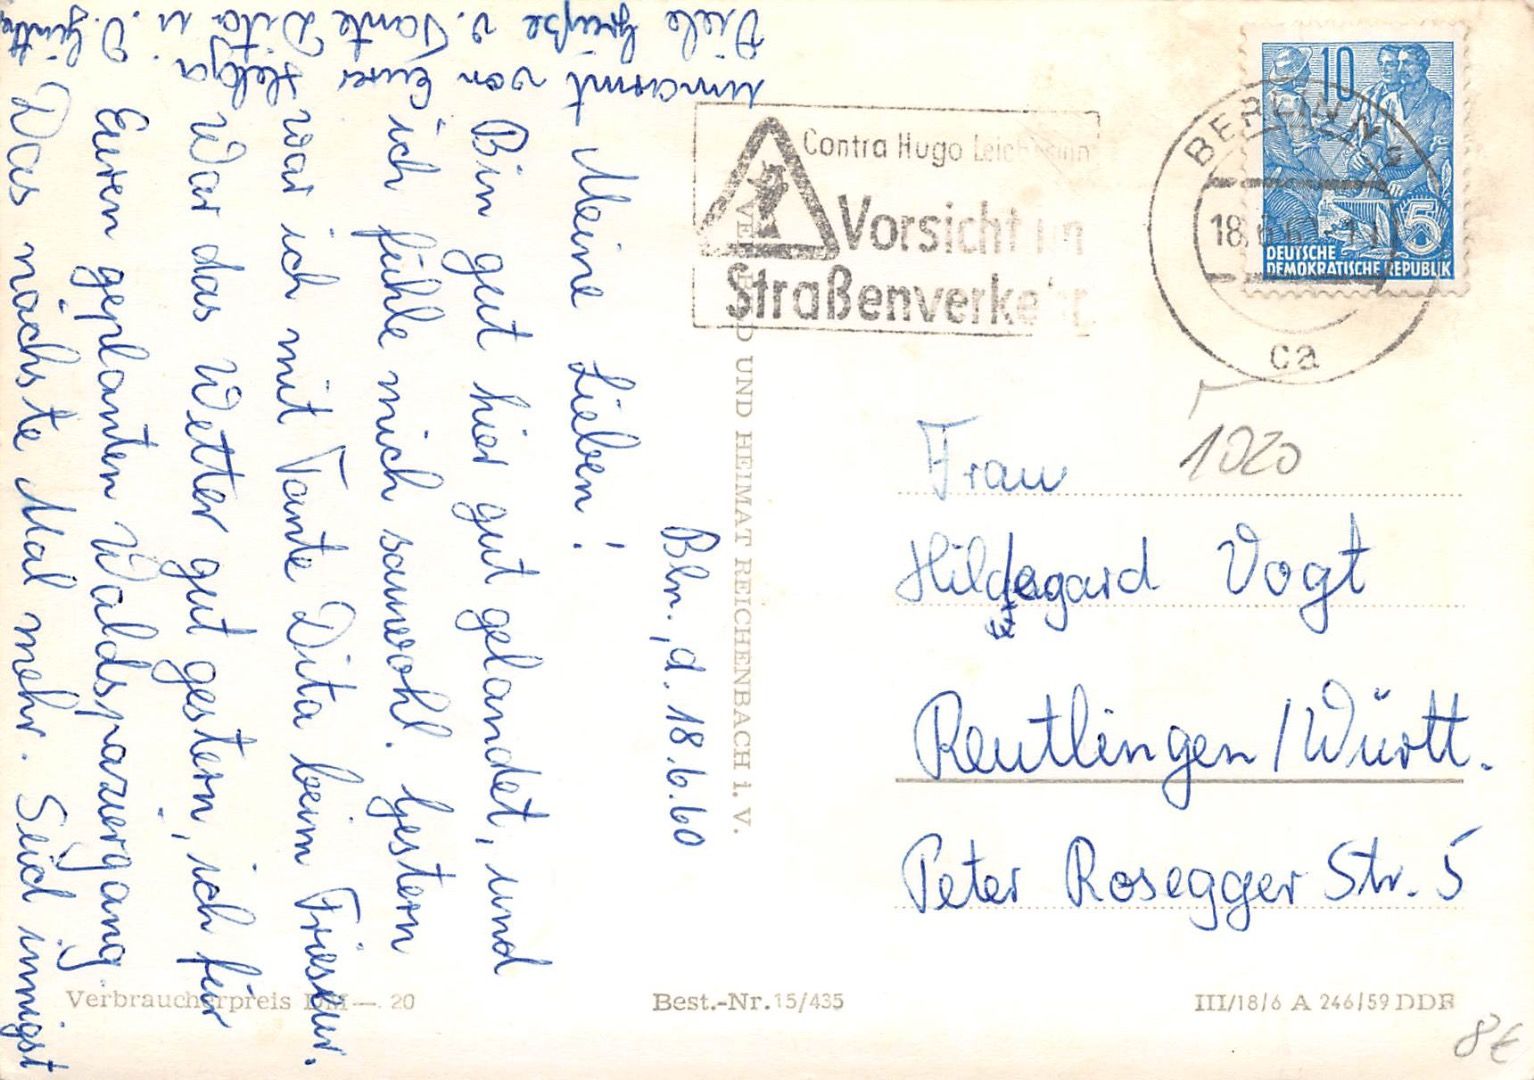 Bln., d. 18.6.60
Meine Lieben!
Bin gut hier gut gelandet, und
ich fühle mich sauwohl. Gestern
war ich mit Tante Dita beim Friseur.
War das Wetter gut gestern, ich für
Euren geplanten Waldspaziergang.
Das nächste Mal mehr. Seid innigst
umarmt von Eurer Helga
Viele Grüße v. Tante Dita u. O.
Contra Hugo
Vorsicht im
Straßenverkehr
BERLIN N
18.6.60
ca
10
5
DEUTSCHE
DEMOKRATISCHE REPUBLIK
1020
Frau
Hildegard Vogt
Reutlingen/Württ.
Peter Rosegger Str. 5
UND HEIMAT REICHENBACH i. V.
Verbraucherpreis DM —. 20
Best.-Nr. 15/435
III/18/6 A 246/59 DDR
8€